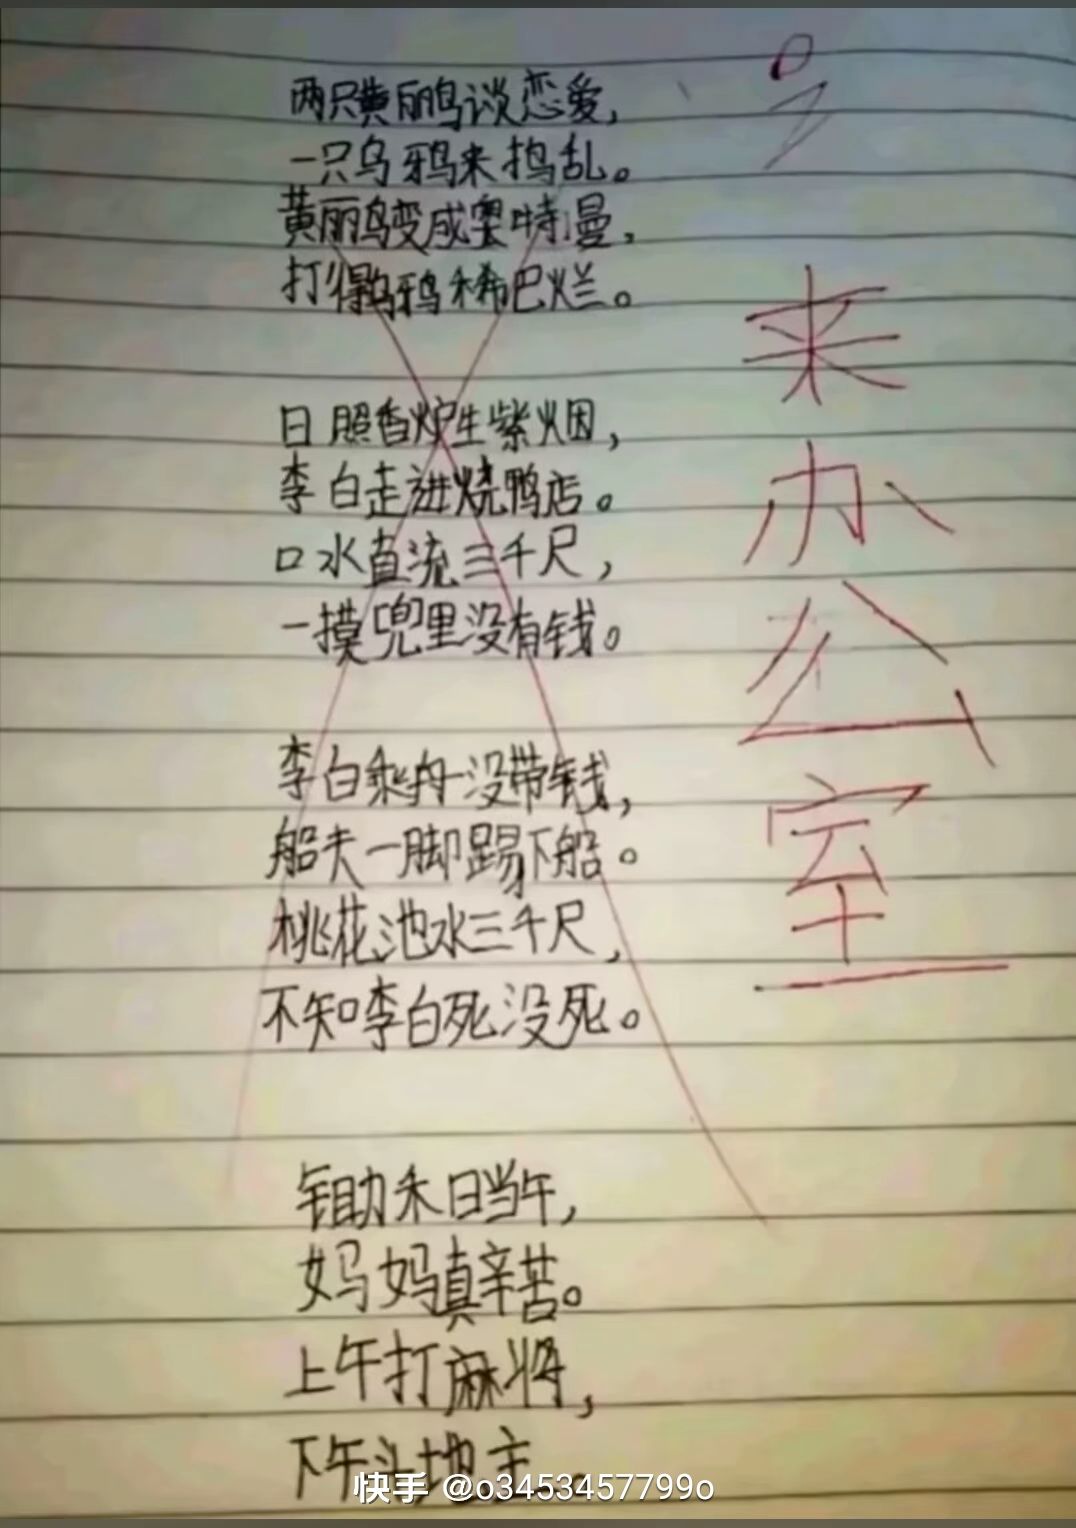 两只黄丽鸟谈恋爱，
一只乌鸦来捣乱。
黄丽鸟变成奥特曼，
打得乌鸦稀巴烂。
日照香炉生紫烟，
李白走进烧鸭店。
口水直流三千尺，
一摸兜里没有钱。
李白乘舟没带钱，
船夫一脚踢下船。
桃花池水三千尺，
不知李白死没死。
锄禾日当午，
妈妈真辛苦。
上午打麻将，
下午斗地主
来办公室
快手 @o3453457799o